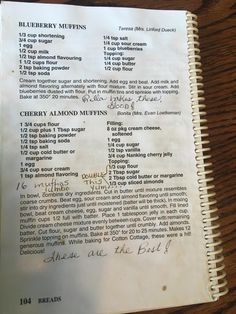 BLUEBERRY MUFFINS
Teresa (Mrs. Linford Dueck)
1/3 cup shortening
3/4 cup sugar
1 egg
1/2 cup milk
1/2 tsp almond flavouring
1 1/2 cups flour
1 tsp baking powder
1/2 tsp soda
1/4 tsp salt
1/4 cup sour cream
1 cup blueberries
Topping:
1/4 cup sugar
1/2 tsp cinnamon
Cream together sugar and shortening. Add egg and beat. Add milk and
almond flavoring alternately with flour mixture. Stir in sour cream. Add
blueberries dusted with flour. Put in muffin tins and sprinkle on topping.
Bake at 350° 20 minutes.
makes these
Good!
CHERRY ALMOND MUFFINS
Bonita (Mrs. Evan Loetheman)
1 3/4 cups flour
1/2 cup plus 1 Tbsp sugar
1 tsp baking powder
1/2 tsp baking soda
1/4 tsp salt
1/2 cup cold butter or
margarine
1 egg
3/4 cup sour cream
1 tsp almond flavoring
Filling:
8 oz pkg cream cheese,
softened
1 egg
1/4 cup sugar
1/2 tsp vanilla
3/4 cup Nanking cherry jelly
Topping:
1/3 cup flour
2 Tbsp sugar
2 Tbsp cold butter or margarine
1/3 cup sliced almonds
16 muffins
Double
This
Yum!
In bowl, combine dry ingredients. Cut in butter until mixture resembles
coarse crumbs. Beat egg, sour cream and almond flavoring until smooth,
stir into dry ingredients just until moistened (batter will be thick). In mixing
bowl, beat cream cheese, egg, sugar and vanilla until smooth. Fill lined
muffin cups 1/2 full with batter. Place 1 tablespoon jelly in each cup.
Divide cream cheese mixture evenly between cups. Cover with remaining
batter. Cut flour, sugar and butter together until crumbly. Add almonds.
Sprinkle topping on muffins. Bake at 350° for 20 to 25 minutes. Makes 12
generous muffins. While baking for Cotton Cottage, these were a hit!
Delicious!
These are the Best!
104 BREADS